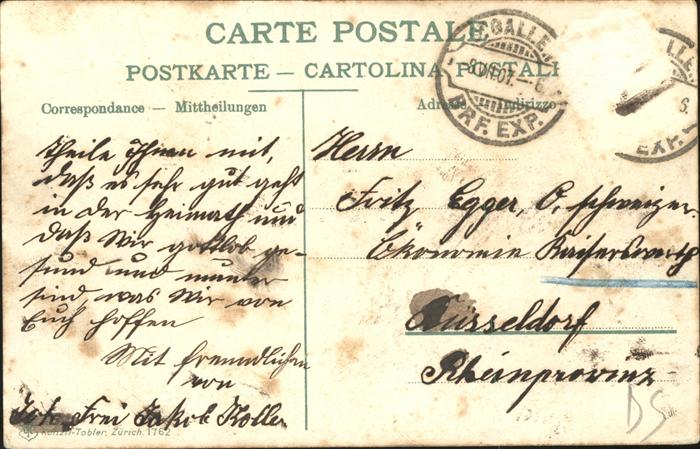 CARTE POSTALE
POSTKARTE — CARTOLINA POSTALE
Correspondance — Mittheilungen
Adresse Indirizzo
GALLEN
8.VII.07. - 6
BRF. EXP.
LLE
6.
EXP.
theile Ihnen mit,
daß es sehr gut geht
in der Heimath und
daß Wir gottlob ge-
sund und munter
sind, was Wir von
Euch hoffen
Mit freundlichen
von
Joh. Frei Jakob Koller
Herrn
Fritz Egger, O. schweizer
Ökonomie Kaiserswerth
Düsseldorf
Rheinprovinz
DS
Künzli-Tobler, Zürich. 1762